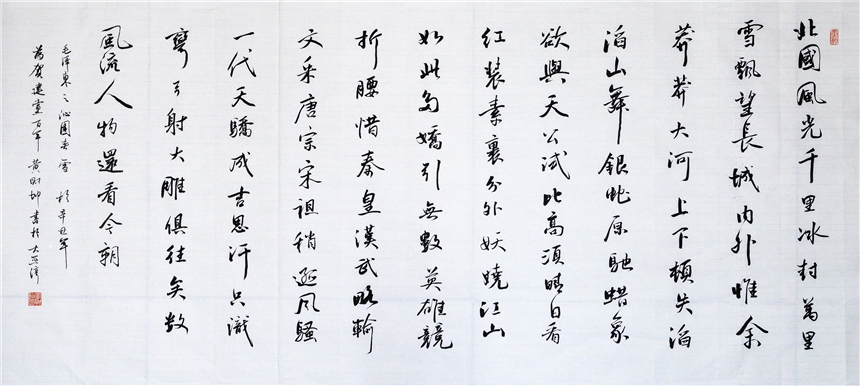 北國風光千里冰封萬里
雪飄望長城內外惟余
莽莽大河上下頓失滔
滔山舞銀蛇原馳蜡象
欲與天公試比高須晴日看
红装素裹分外妖嬈江山
如此多嬌引無數英雄競
折腰惜秦皇漢武略輸
文采唐宗宋祖稍遜风騷
一代天驕成吉思汗只識
彎弓射大雕俱往矣数
風流人物還看今朝
毛泽東之沁園春雪 於辛丑年
為賀建黨百年 黄财坤書於大亞湾